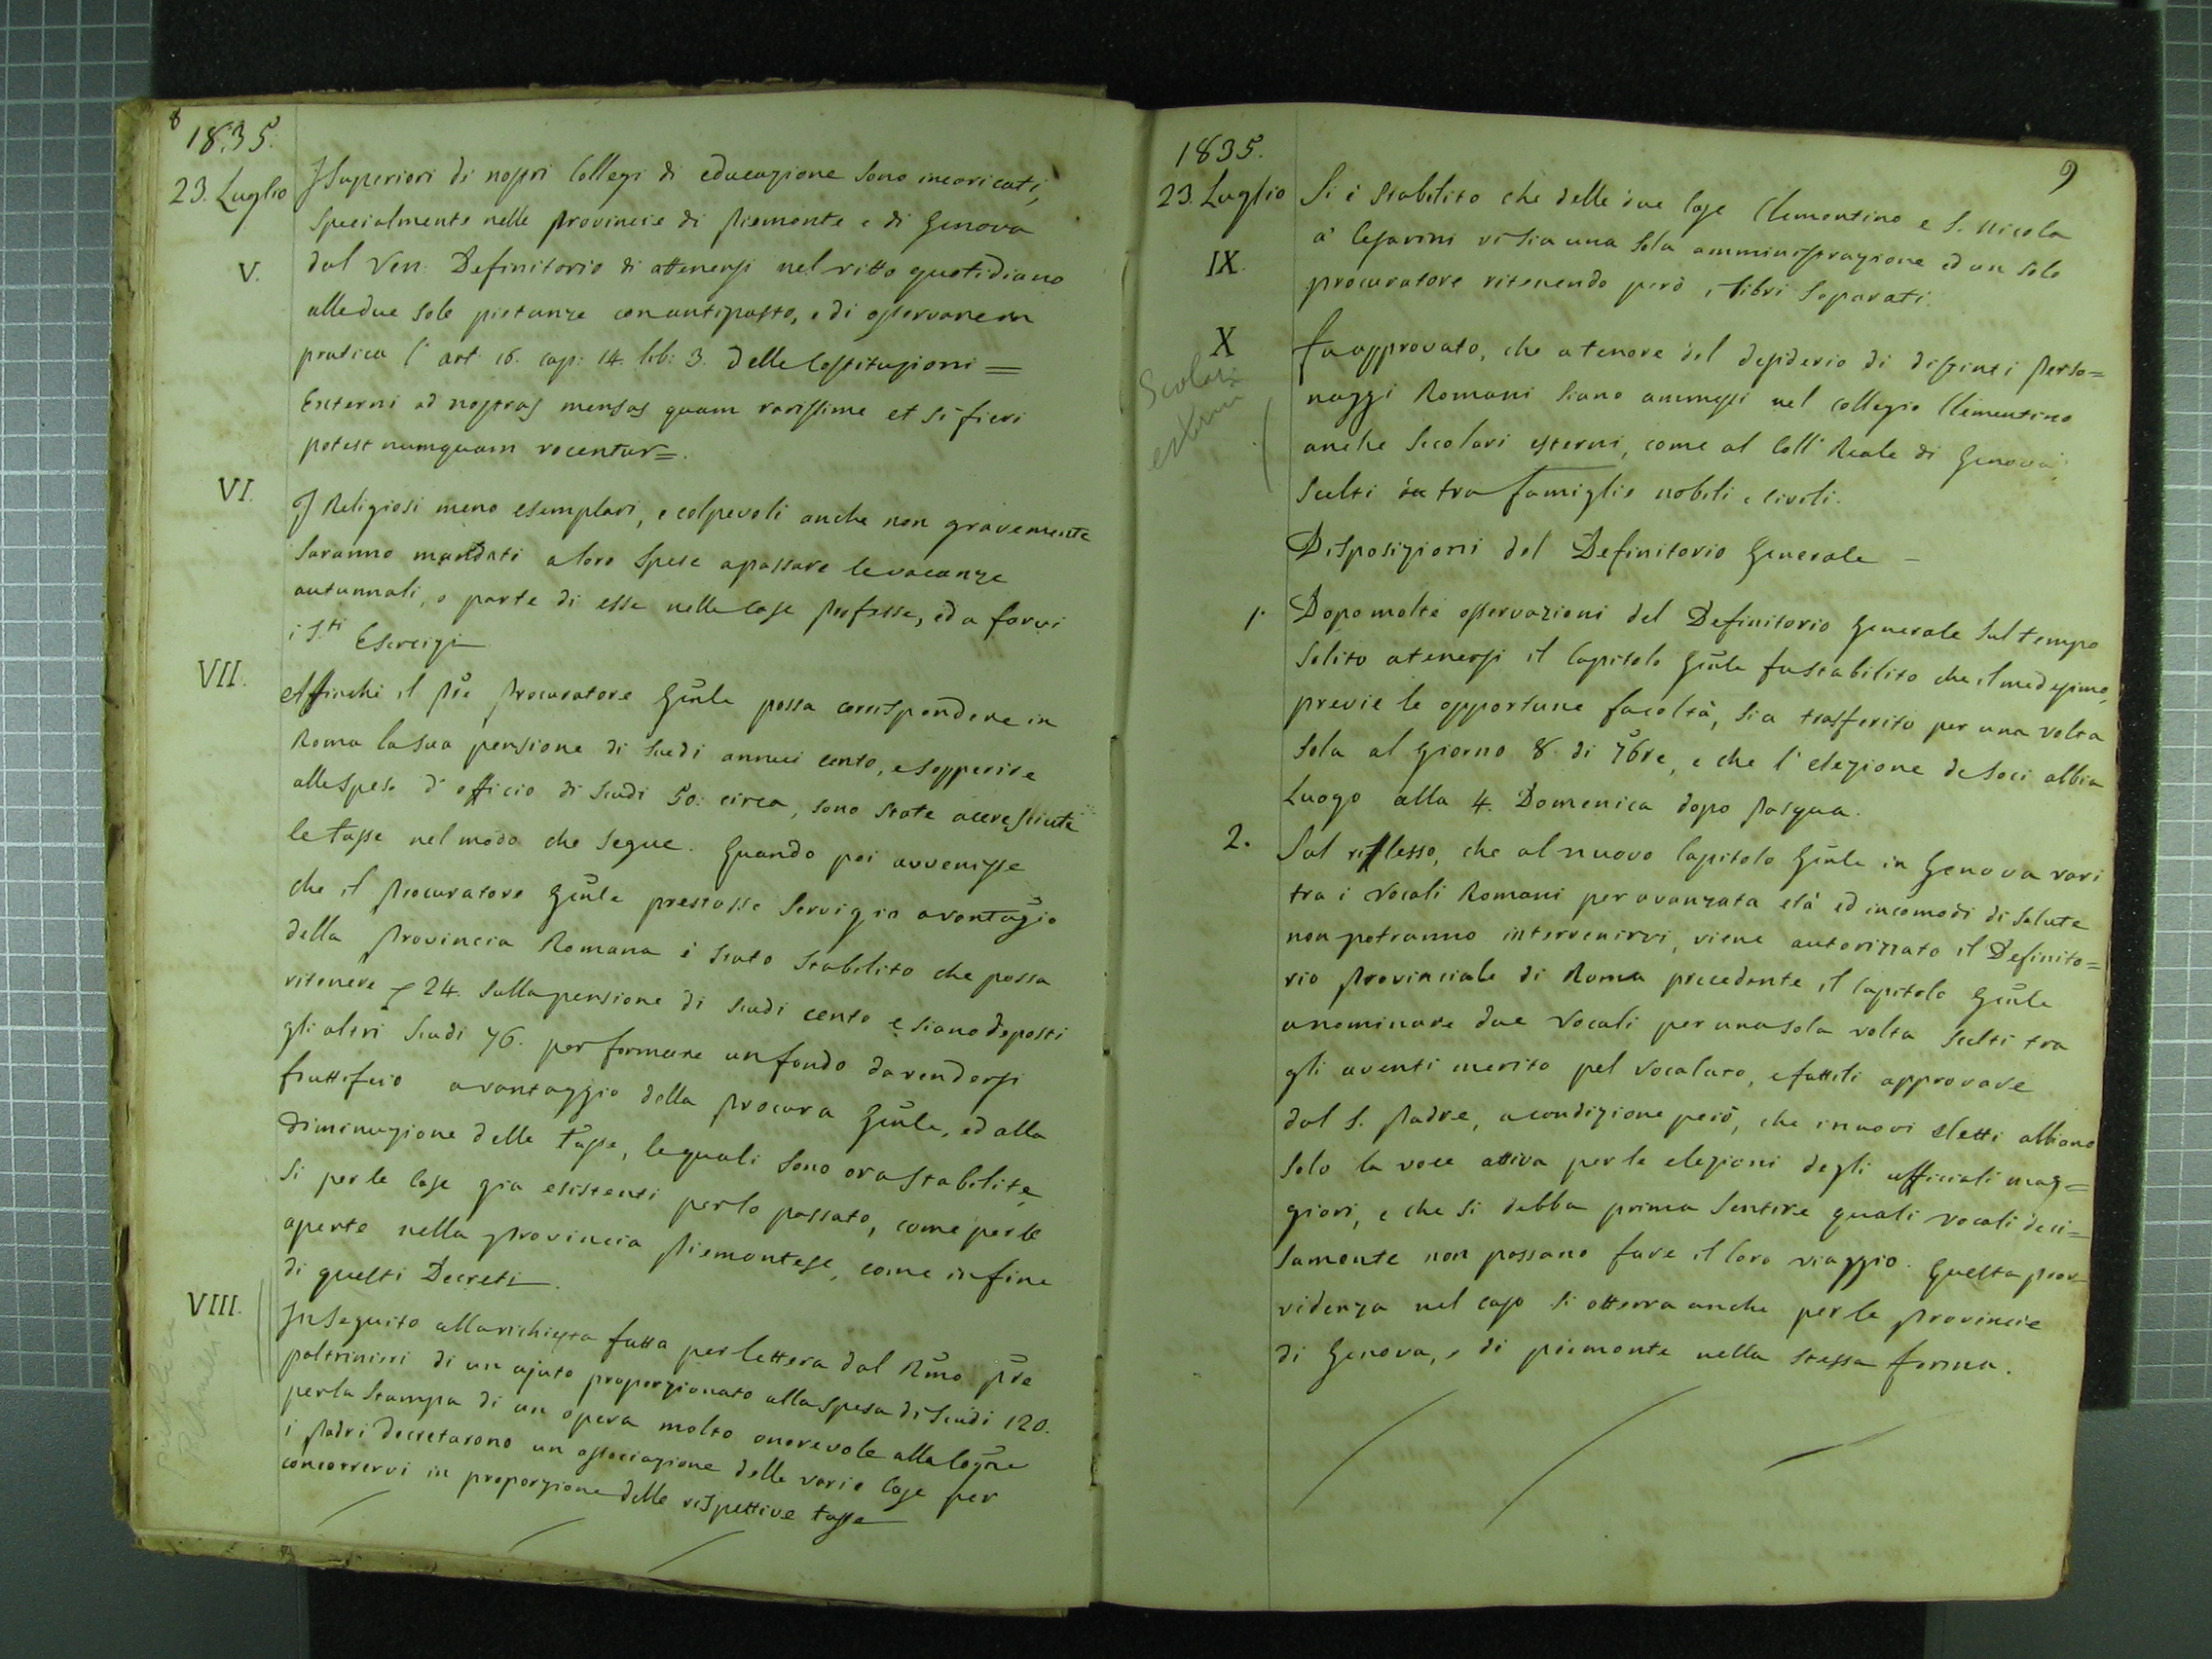 8
1835.
23. Luglio
I Superiori di nostri Collegi di educazione sono incaricati,
specialmente nelle Provincie di Piemonte e di Genova
V.
dal Ven. Definitorio di attenersi nel vitto quotidiano
alle due sole pietanze con antipasto, e di osservare in
pratica l'art. 16. cap: 14. lib: 3. delle Costituzioni =
Externi ad nostras mensas quam rarissime et si fieri
potest numquam vocentur =.
VI.
I Religiosi meno esemplari, e colpevoli anche non gravemente
saranno mandati a loro spese a passare le vacanze
autunnali, o parte di esse nelle Case Professe, ed a farvi
i S.ti Esercizi
VII.
Affinchè il Pre Procuratore Gnle possa corrispondere in
Roma la sua pensione di scudi annui cento, e sopperire
alle spese d'officio di scudi 50: circa, sono state accresciute
le tasse nel modo che segue. Quando poi avvenisse
che il Procuratore Gnle prestasse servigio a vantagio
della Provincia Romana è stato stabilito che possa
ritenere 24. sulla pensione di scudi cento e siano deposti
gli altri scudi 76. per formare un fondo da rendersi
fruttifero a vantaggio della Procura Gnle, ed alla
diminuzione delle tasse, le quali sono ora stabilite
si per le Case gia esistenti per lo passato, come per le
aperte nella Provincia Piemontese, come in fine
di questi Decreti.
VIII.
In seguito alla richiesta fatta per lettera dal Rmo Pre
Paltrinieri di un ajuto proporzionato alla spesa di scudi 120.
per la stampa di un opera molto onorevole alla Cogne
i Padri decretarono un associazione delle varie Case per
concorrervi in proporzione delle rispettive tasse
9
1835.
23. Luglio
Si è stabilito che delle due Case Clementino e S. Nicola
a' Cesarini vi sia una sola amministrazione ed un solo
IX.
procuratore ritenendo però i libri separati.
X
Scolari
esterni
Fu approvato, che a tenore del desiderio di distinti Perso=
naggi Romani siano ammessi nel collegio Clementino
anche Secolari esterni, come al Coll. Reale di Genova,
scelti tra famiglie nobili e civili.
Disposizioni del Definitorio Generale —
1.
Dopo molte osservazioni del Definitorio Generale sul tempo
solito a tenersi il Capitolo Gnle fu stabilito che il medesimo,
previe le opportune facoltà, sia trasferito per una volta
sola al giorno 8. di 7bre, e che l'elezione de Soci abbia
luogo alla 4. Domenica dopo Pasqua.
2.
Sul riflesso, che al nuovo Capitolo Gnle in Genova vari
tra i Vocali Romani per avanzata età ed incomodi di salute
non potranno intervenirvi, viene autorizzato il Definito=
rio Provinciale di Roma precedente il Capitolo Gnle
a nominare due Vocali per una sola volta scelti tra
gli aventi merito pel Vocalato, e fattili approvare
dal S. Padre, a condizione però, che i nuovi eletti abbiano
solo la voce attiva per le elezioni degli ufficiali mag=
giori, e che si debba prima sentire quali vocali deci=
samente non possano fare il loro viaggio. Questa prov=
videnza nel caso si otterra anche per le Provincie
di Genova, e di piemonte nella stessa forma.